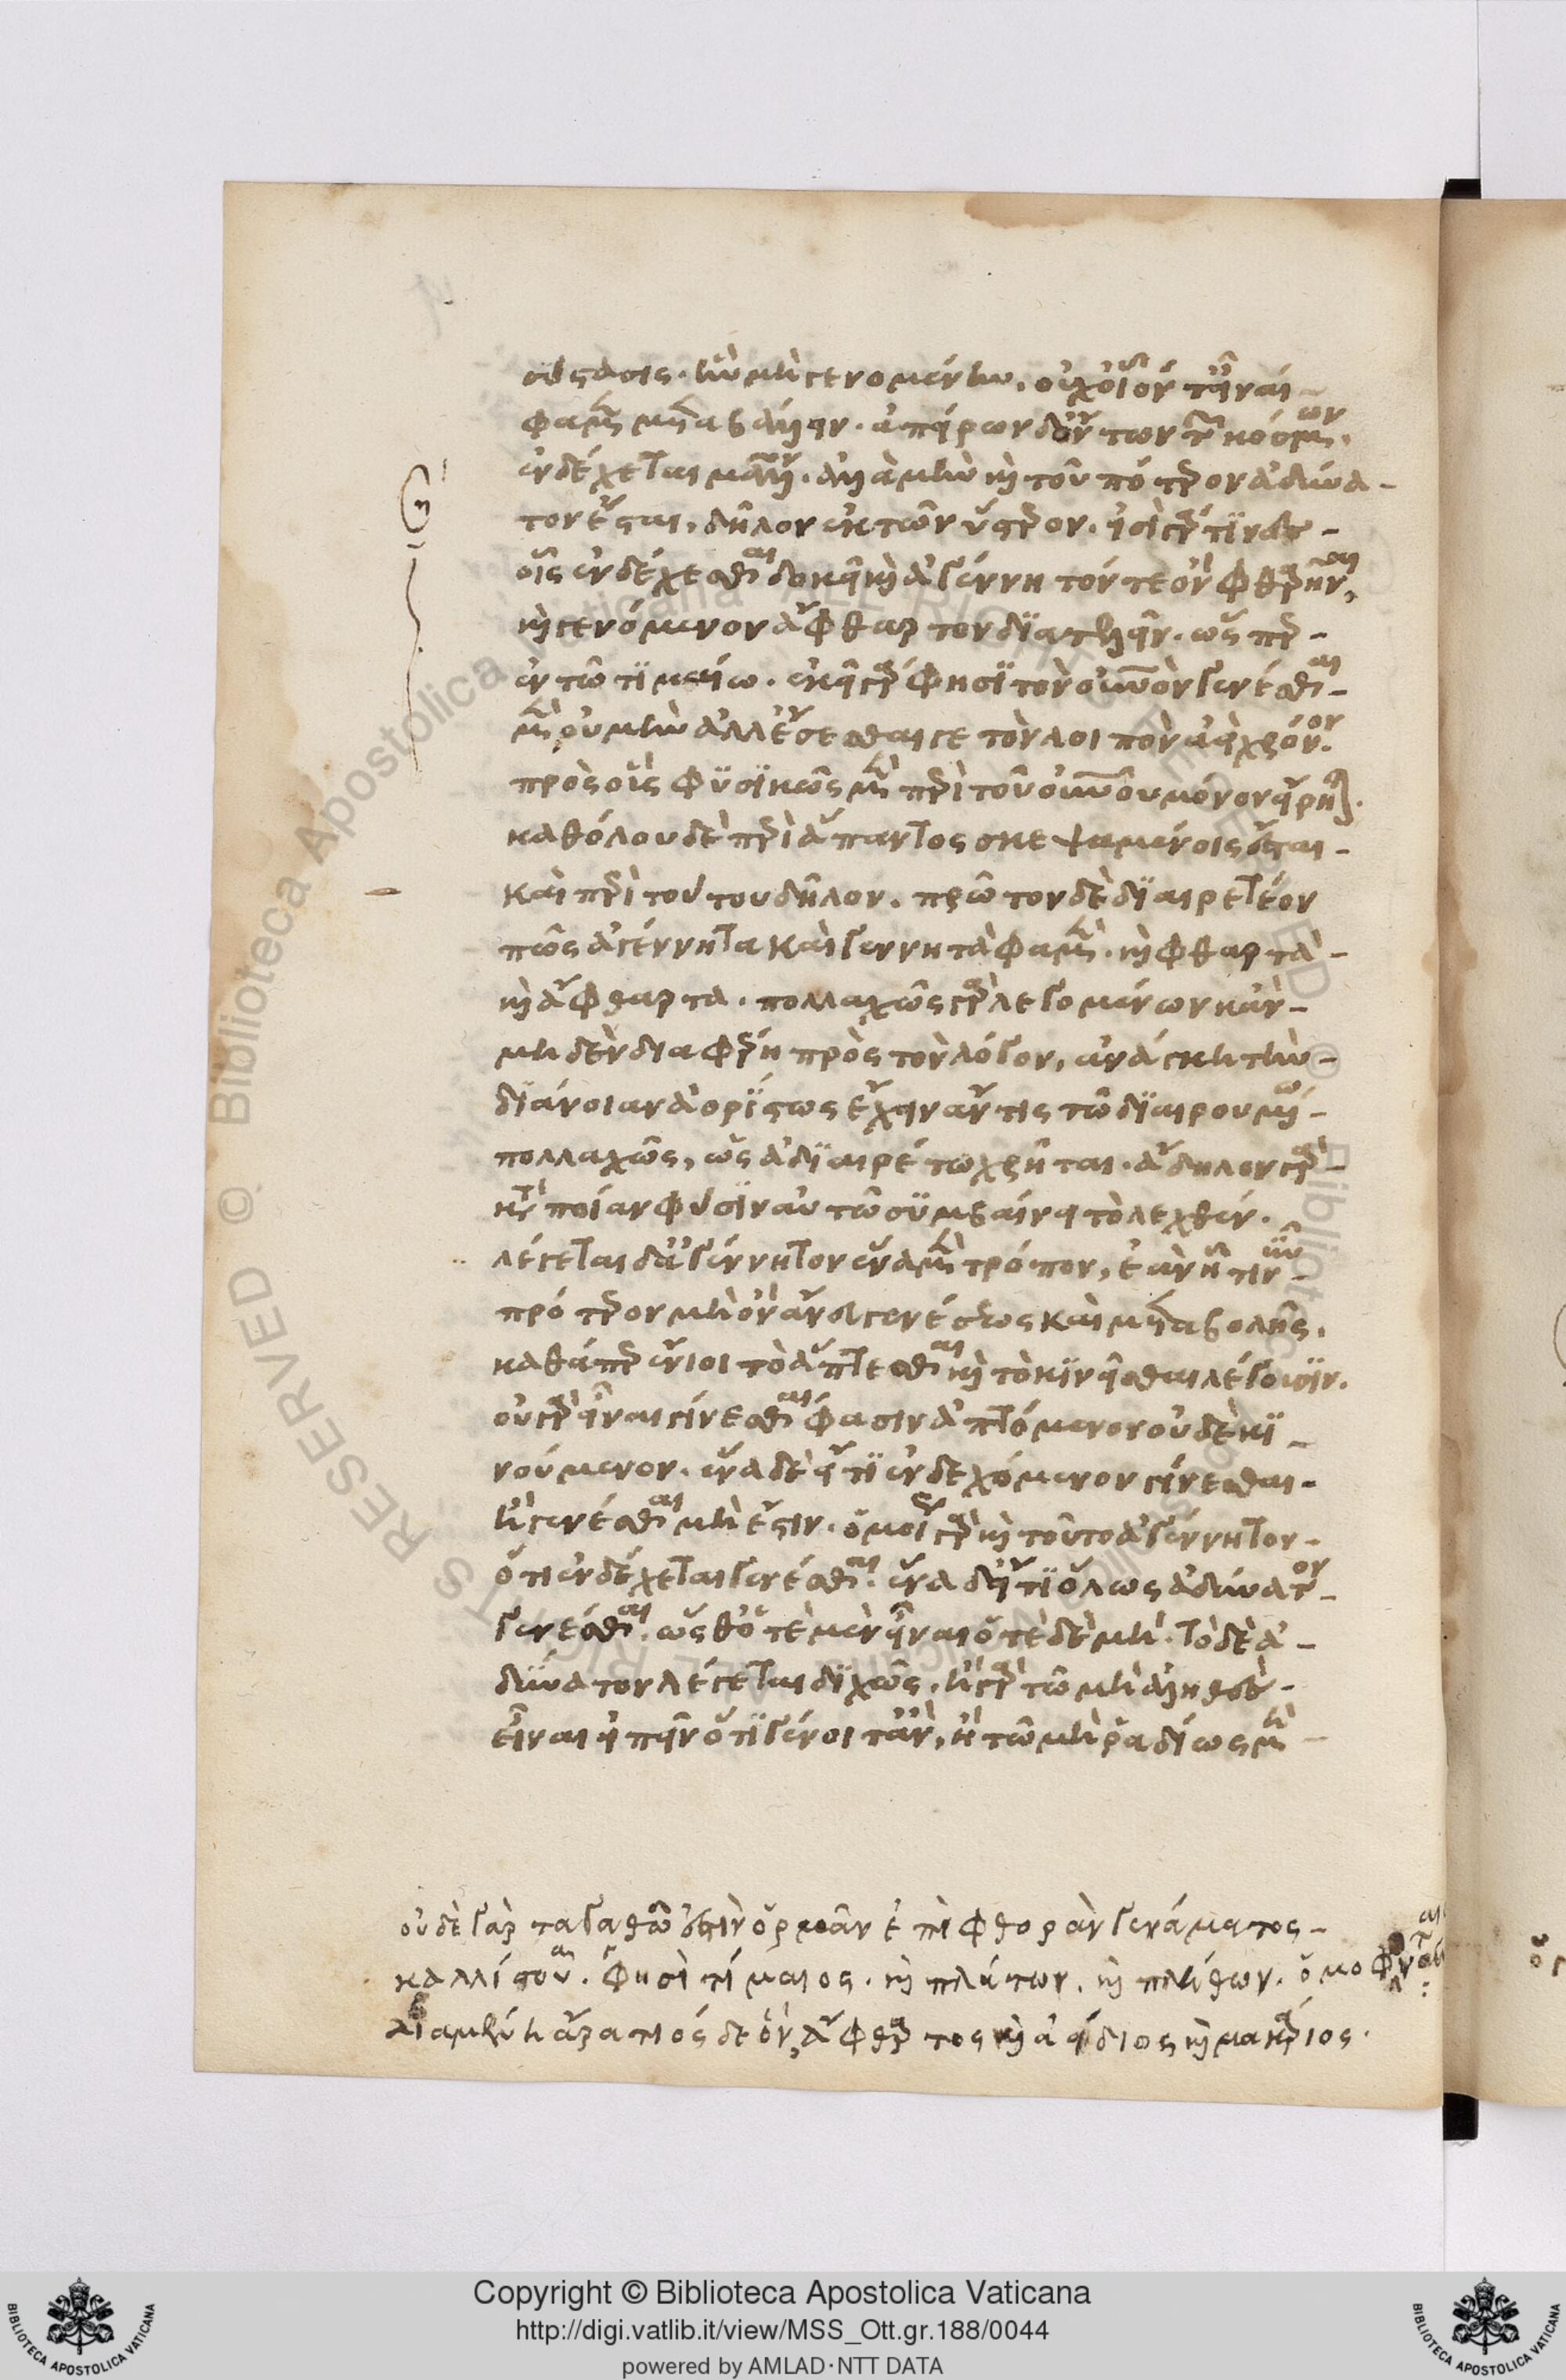 σύστασις. ἣν μὴ γενομένην, οὐχ οἷόν τ' εἶναί
φαμεν μεταβάλλειν. ἀπείρων δ' ὄντων τῶν κόσμων.
ἐνδέχεται μᾶλλον. ἀλλὰ μὴν καὶ τοῦτο πότερον ἀδύνα-
τον ἔσται, δῆλον ἐκ τῶν ὕστερον. εἰσὶ γάρ τινες
οἷς ἐνδέχεσθαι δοκεῖ καὶ ἀγέννητόν τε ὂν φθαρῆναι,
καὶ γενόμενον ἄφθαρτον διατελεῖν. ὥσπερ
ἐν τῷ τιμαίῳ. ἐκεῖ γάρ φησι τὸν οὐρανὸν γενέσθαι
μὲν, οὐ μὴν ἀλλ' ἔσεσθαί γε τὸν λοιπὸν ἀεὶ χρόνον.
πρὸς οὓς φυσικῶς μὲν περὶ τοῦ οὐρανοῦ μόνον εἴρηται.
καθόλου δὲ περὶ ἅπαντος σκεψαμένοις ἔσται
καὶ περὶ τούτου δῆλον. πρῶτον δὲ διαιρετέον
πῶς ἀγέννητα καὶ γεννητά φαμεν. καὶ φθαρτὰ
καὶ ἄφθαρτα. πολλαχῶς γὰρ λεγομένων κἂν
μηδὲν διαφέρῃ πρὸς τὸν λόγον, ἀνάγκη τὴν
διάνοιαν ἀορίστως ἔχειν ἄν τις τῷ διαιρουμένῳ
πολλαχῶς, ὡς ἀδιαιρέτῳ χρῆται. ἄδηλον γὰρ
κατὰ ποίαν φύσιν αὐτῷ συμβαίνει τὸ λεχθέν.
λέγεται δ' ἀγέννητον ἕνα μὲν τρόπον, ἐὰν ᾖ τι νῦν
πρότερον μὴ ὂν ἄνευ γενέσεως καὶ μεταβολῆς.
καθάπερ ἔνιοι τὸ ἅπτεσθαι καὶ τὸ κινεῖσθαι λέγουσιν.
οὐ γὰρ εἶναι γίνεσθαί φασιν ἁπτόμενον οὐδὲ κι-
νούμενον. ἕνα δὲ εἴ τι ἐνδεχόμενον γίνεσθαι
ἢ γενέσθαι μὴ ἔστιν. ὁμοίως γὰρ καὶ τοῦτο ἀγέννητον
ὅτι ἐνδέχεται γενέσθαι. ἕνα δ' εἴ τι ὅλως ἀδύνατον
γενέσθαι. ὥσθ' ὁτὲ μὲν εἶναι ὁτὲ δὲ μή. τὸ δὲ ἀ-
δύνατον λέγεται διχῶς. ἢ γὰρ τῷ μὴ ἀληθὲς
εἶναι εἰπεῖν ὅτι γένοιτ' ἄν, ἢ τῷ μὴ ῥαδίως μη
οὐδὲ γὰρ τἀγαθῶ ἐστὶν ὁρμᾶν ἐπὶ φθορὰν γενάματος
καλλίστου. φησὶ τίμαιος. καὶ πλάτων. καὶ πλήθων.
ἄφθαρτος καὶ ἀΐδιος καὶ μακάριος.
Copyright © Biblioteca Apostolica Vaticana
http://digi.vatlib.it/view/MSS_Ott.gr.188/0044
powered by AMLAD·NTT DATA